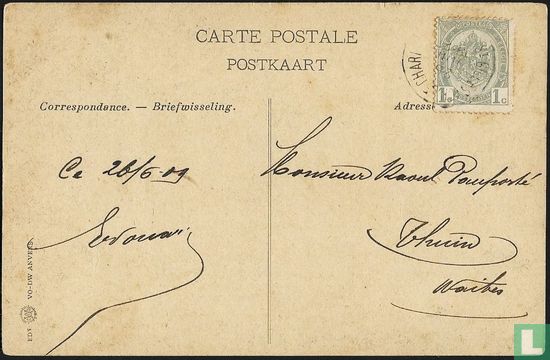 CARTE POSTALE
POSTKAART
Correspondance. — Briefwisseling.
Adresse
CHAR
1c 1c
Ce 26/6 09
Monsieur Raoul Pomporté
Edouard
Thuin
Waibes
EDT VO-DW ANVERS
LastDodo